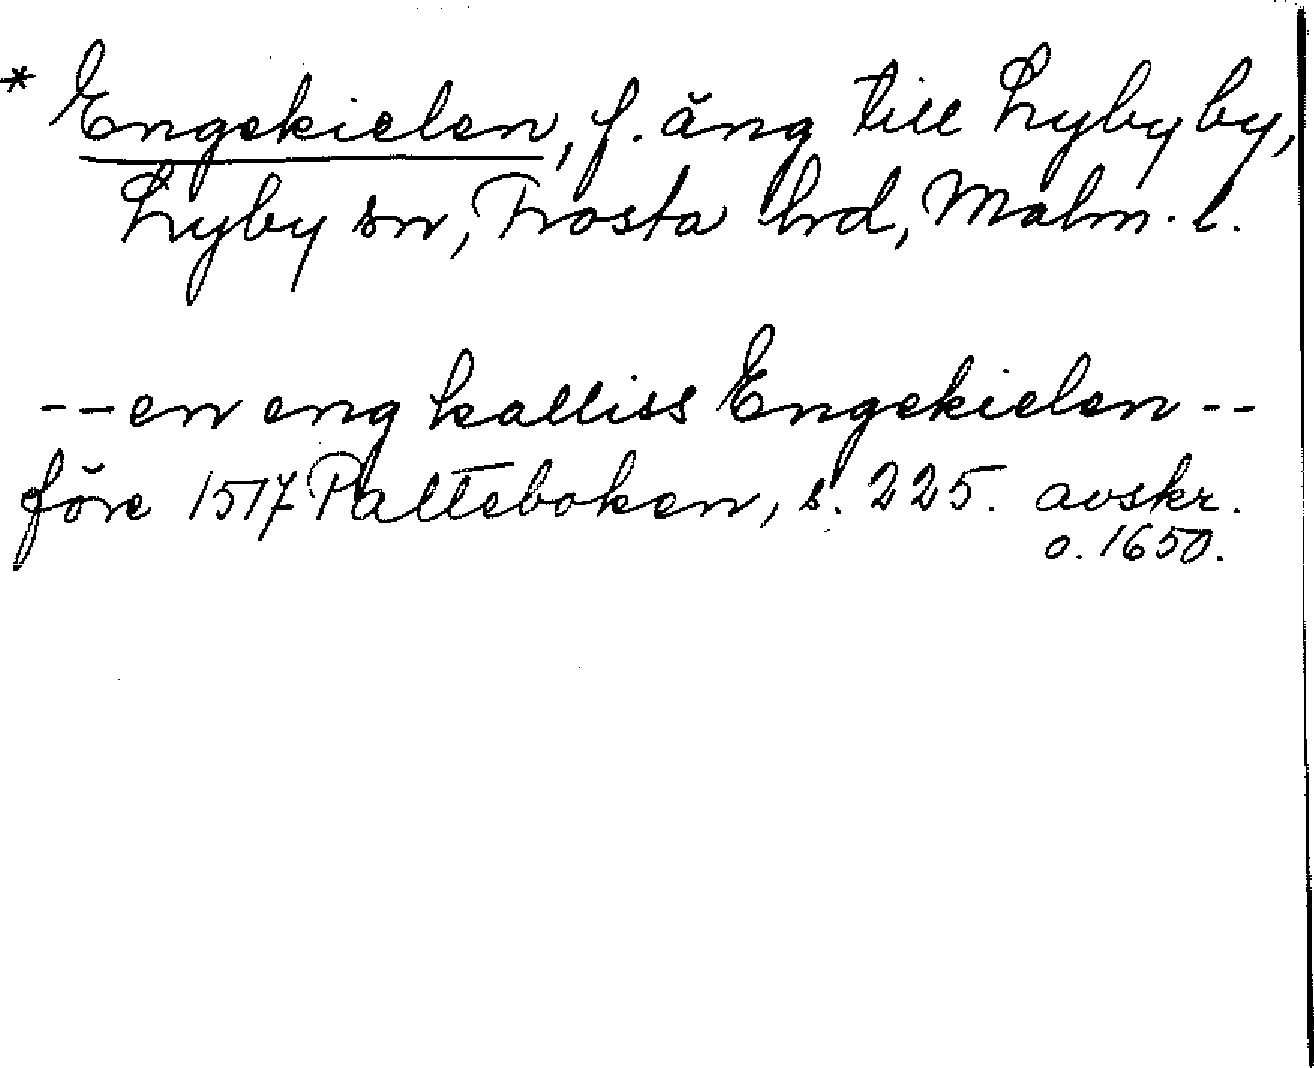 * Engekielen, f. äng till Lyby by,
Lyby sn, Frosta hrd, Malm. l.
-- en eng kalliss Engekielen --
före 1517 Palteboken, s. 225. avskr.
o. 1650.